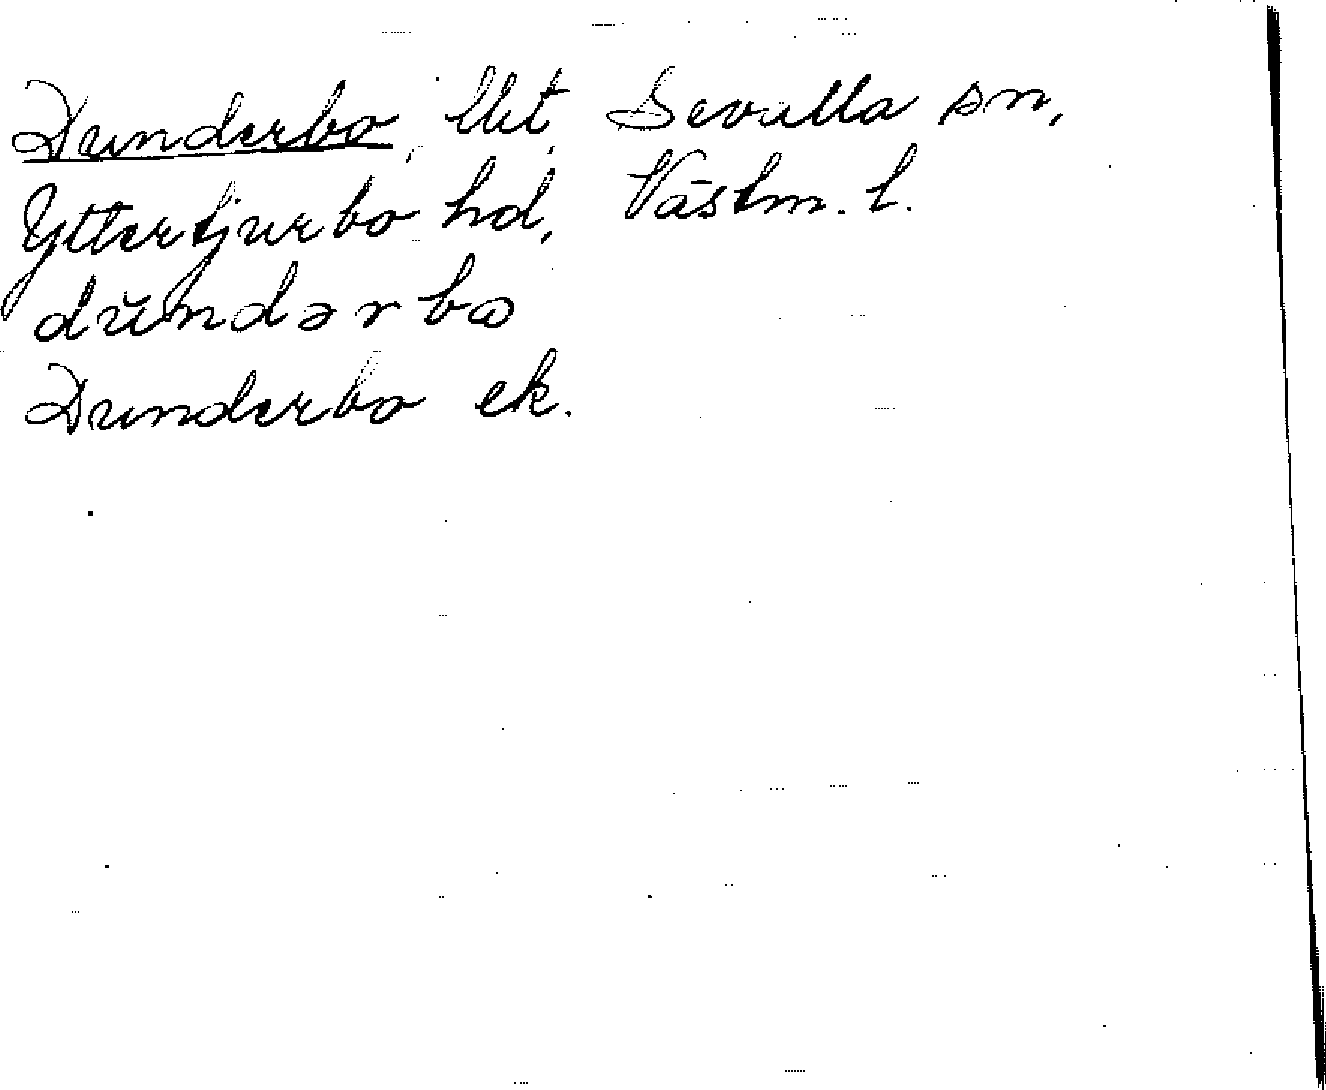 Dunderbo, lht, Sevalla sn,
Yttertjurbo hd, Västm. l.
dŭndərbω
Dunderbo ek.